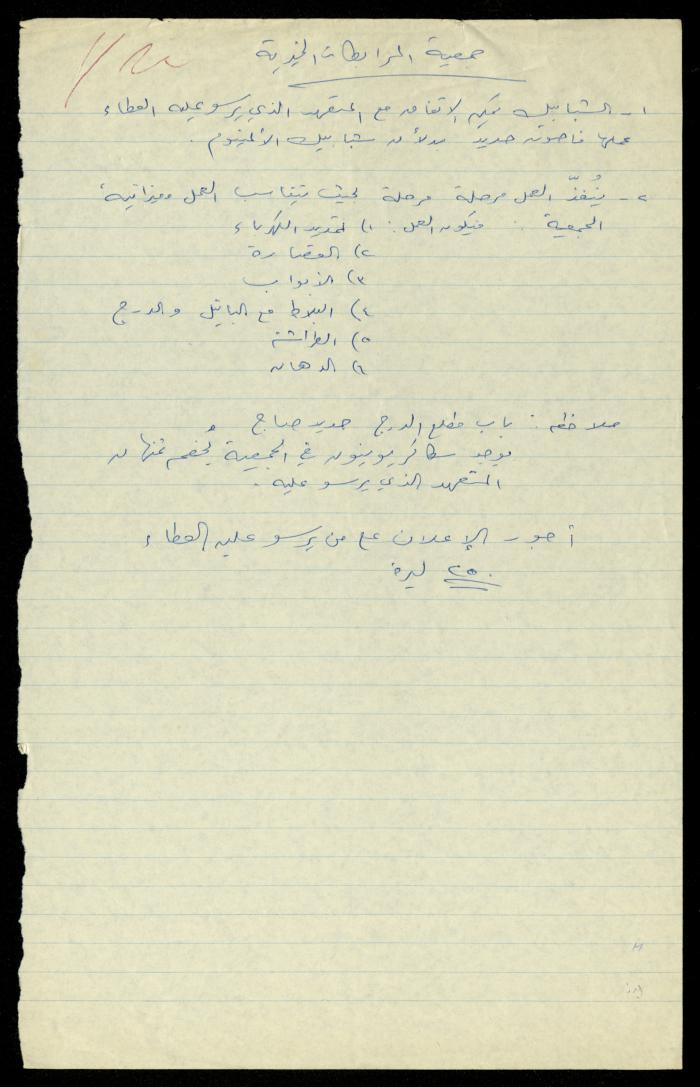 جمعية المرابطات الخيرية
١- الشبابيك يمكن الاتفاق مع المتعهد الذي يرسو عليه العطاء
عملها فاصون حديد بدلاً من شبابيك الألمنيوم.
٢- يُنفذّ العمل مرحلة مرحلة بحيث يتناسب العمل وميزانية
الجمعية : فيكون العمل: ١) تمديد الكهرباء
٢) القصارة
٣) الأبواب
٤) البلاط مع البانيل والدرج
٥) الطراشة
٦) الدهان
ملاحظة : باب مطلع الدرج حديد صاج
يوجد في الجمعية يُخصم ثمنها من
المتعهد الذي يرسو عليه.
أجور الإعلان على من يرسو عليه العطاء
٢٥٠ ليرة